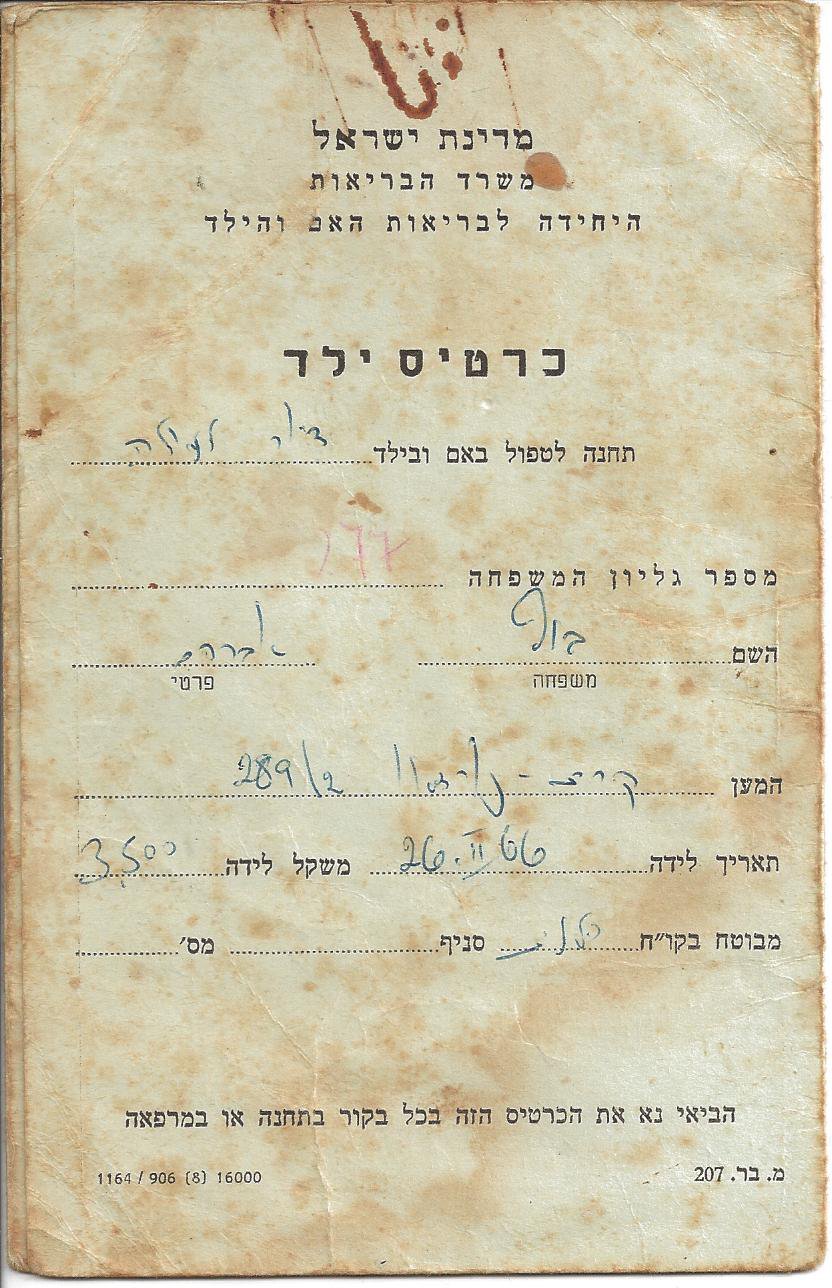 מדינת ישראל
משרד הבריאות
היחידה לבריאות האם והילד
כרטיס ילד
תחנה לטפול באם ובילד
177
מספר גליון המשפחה
השם אברהם
משפחה פרטי
המען 289/2
תאריך לידה 26.II 66 משקל לידה 3,500
מבוטח בקו״ח סניף מס׳
הביאי נא את הכרטיס הזה בכל בקור בתחנה או במרפאה
מ. בר. 207 1164 / 906 (8) 16000